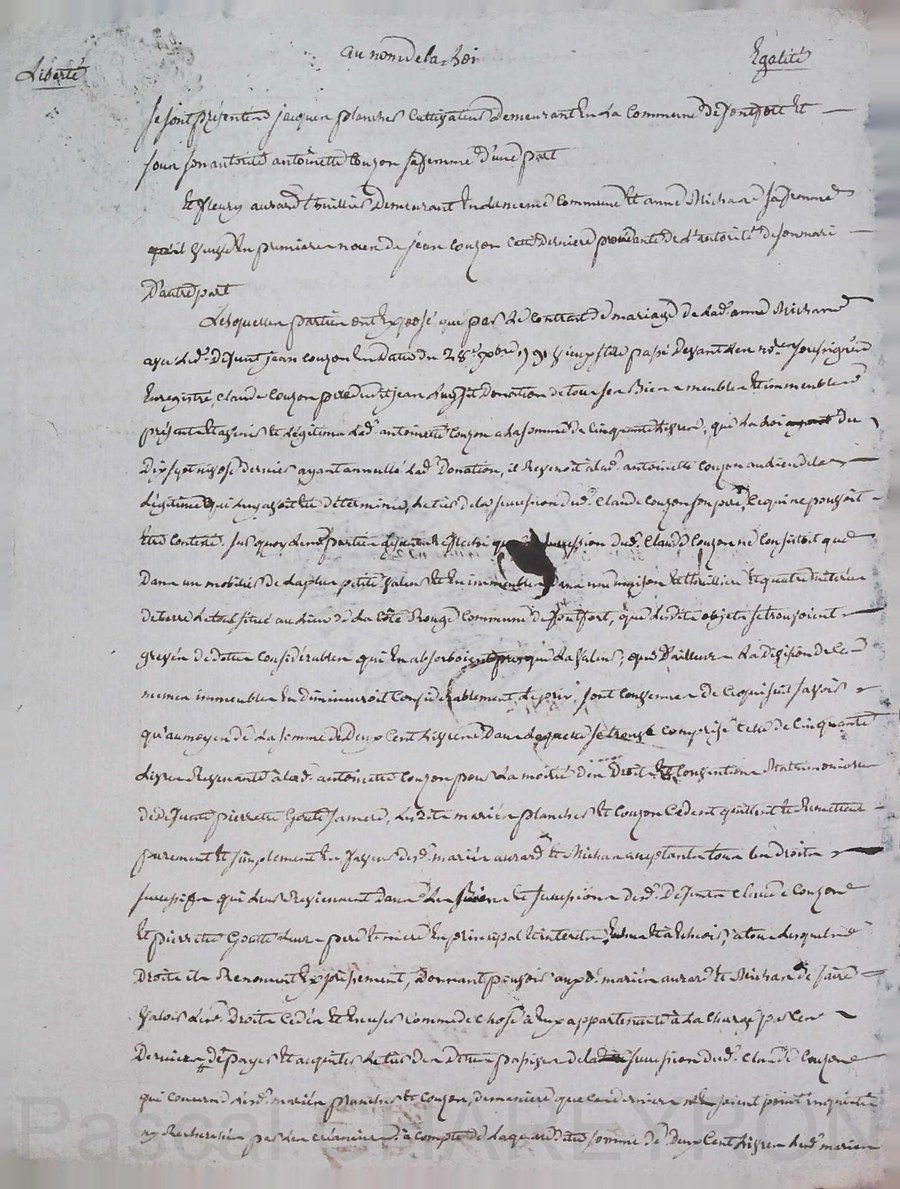 Liberté au nom de la Loi Egalité
Se sont présentés jacques planches Cultivateur Demeurant En La Commune de Jontfort Et
sous son autorité antoinette Couzon sa femme d'une part
Et fleury aurard thuillier Demeurant En la meme Commune Et anne Michard sa femme
veuve En premieres noces de jean Couzon Cette derniere procedante de L'autorité de son mari
D'autre part
Lesquelles parties ont Exposé que par Le Contrat de mariage de Lad. anne Michard
avec Led. Defunt jean Couzon En Datte du 28 1791 vieux stile passé Devant Le no.re soussigné
Enregistré, Claude Couzon pere dudit jean luy fit Donation de tous ses Biens meubles Et immeubles
présents Et avenir Et Légitima Lad. antoinette Couzon a la somme de Cinquante Livres, que La Loi du
Dix sept nivose dernier ayant annullé Lad. Donation, il Revenoit a lad. antoinette Couzon au dieu de la
Légitime qui luy avoit été déterminée, Le tiers de la succession dud. Claude Couzon son pere, Ce qui ne pouvoit
Etre Contesté. sur quoy Les parties que succession dud. Claude Couzon ne Consistoit que
Dans un mobilier de La plus petite valeur Et En immeubles Dans une maison Et thuillier Et quatre
de terre Le tout situé au Lieu de La Cotte Rouge Commune de Jontfort, que Lesdits objets se trouvoient
grevés de dettes Considérables qui En absorboient presque La valeur, que D'ailleurs La Division de Ces
memes immeubles En diminueroit Considérablement Le prix, sont Convenues de Ce qui suit savoir
qu'au moyen de La somme de Deux Cent Livres Dans Laquelle se trouve comprise Celle de Cinquante
Livres Revenante a lad. antoinette Couzon pour La moitié des Droits Et Conventions Matrimoniaux
de defunte pierrette Goutte sa mere, Lesdits mariés planches Et Couzon Cedent quittent Et Remettent
purement Et simplement En faveur desd. mariés aurard Et Michard acceptants tous Les Droits
successifs qui Leur Reviennent Dans Les Biens Et successions desd. Defunts Claude Couzon
Et pierrette Goutte Leurs pere Et mere En principal Et interets, a tous Lesquels
Droits ils Renoncent Expressement, Donnant pouvoir auxd. mariés aurard Et Michard de faire
valoir Les. Droits Cedés Et En user Comme de Chose a Eux appartenante a La Charge par Ces
Derniers de payer Et acquitter Le tiers des Dettes passives de la succession dud. Claude Couzon
qui Concerne Lesd. mariés planches Et Couzon, de maniere que Ces derniers ne soient point inquiétés
ny Recherchés par Les Créanciers, a Compte de Laquelle ditte somme de Deux Cent Livres Lesd. mariés